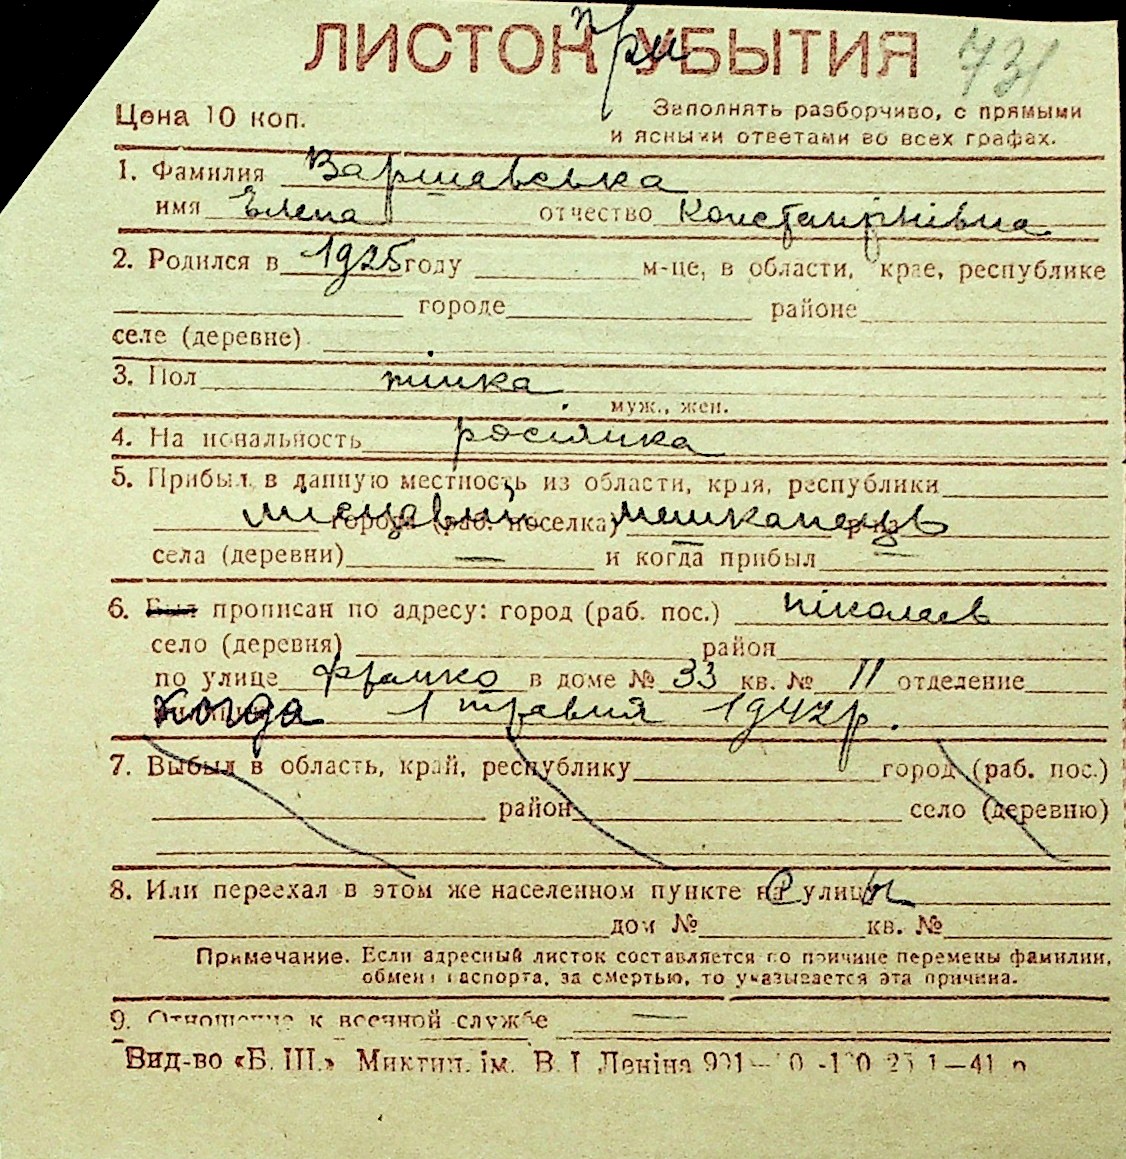 ЛИСТОК при УБЫТИЯ 731
Цена 10 коп.
Заполнять разборчиво, с прямыми
и ясными ответами во всех графах.
1. Фамилия Варшавська
имя Елена отчество Константінівна
2. Родился в 1925 году м-це, в области, крае, республике
городе районе
селе (деревне)
3. Пол жінка
муж., жен.
4. Национальность росіянка
5. Прибыл в данную местность из области, края, республики
місцевий города (раб. поселка) мешканець р-на
села (деревни) — и когда прибыл
6. Был прописан по адресу: город (раб. пос.) Ніколаев
село (деревня) район
по улице Франко в доме № 33 кв. № 11 отделение
Когда 1 травня 1942 р.
7. Выбыл в область, край, республику город (раб. пос.)
район село (деревню)
8. Или переехал в этом же населенном пункте на с улицы
дом № кв. №
Примечание. Если адресный листок составляется по причине перемены фамилии,
обмена паспорта, за смертью, то указывается эта причина.
9. Отношение к военной службе —
Вид-во «Б. Ш.» Микгип. ім. В. І Леніна